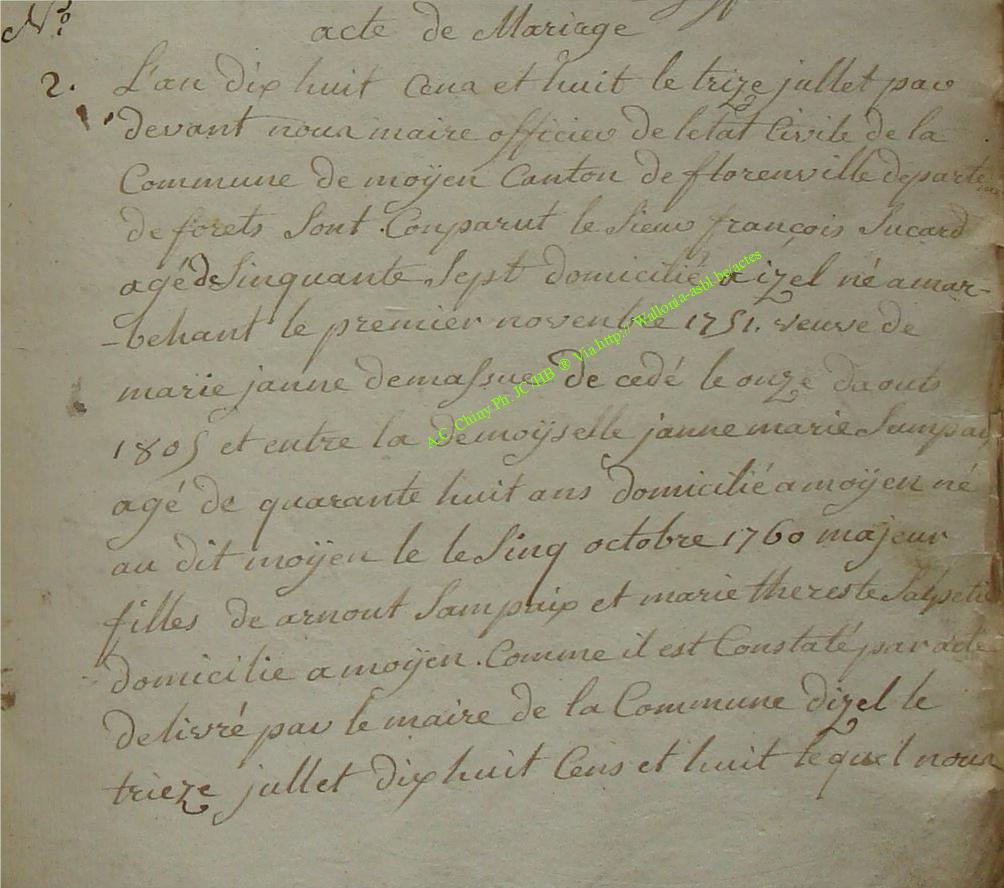 No
acte de Mariage
2. L'an dix huit Cens et huit le trize jullet par
devant nous maire officier de letat Civile de la
Commune de moÿen Canton de florenville departe
de forets Sont Conparut le Sieur françois Sucard
agé de Sinquante Sept domicilié a izel né a mar-
-behant le premier novembre 1751. veuve de
marie janne demassue de cedé le onze daouts
1805 et entre la demoÿselle janne marie Sampaix
agé de quarante huit ans domicilié a moÿen né
au dit moÿen le le Sinq octobre 1760 majeur
filles de arnout Sampaix et marie thereste
domicilie a moÿen. Comme il est Constaté par acte
delivré par le maire de la Commune dizel le
trieze jullet dix huit Cens et huit lequel nous
A.C. Chiny Ph. JC/HB ® Via http:// Wallonia-asbl.be/actes